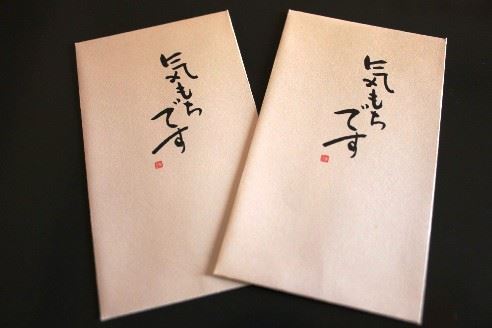 気もち
です
気もち
です